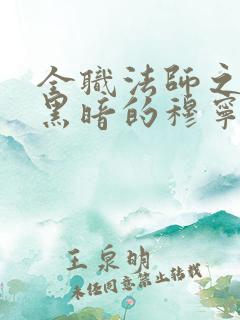 全职法师之
黑暗的穆宁
王泉明
未经同意禁止转载